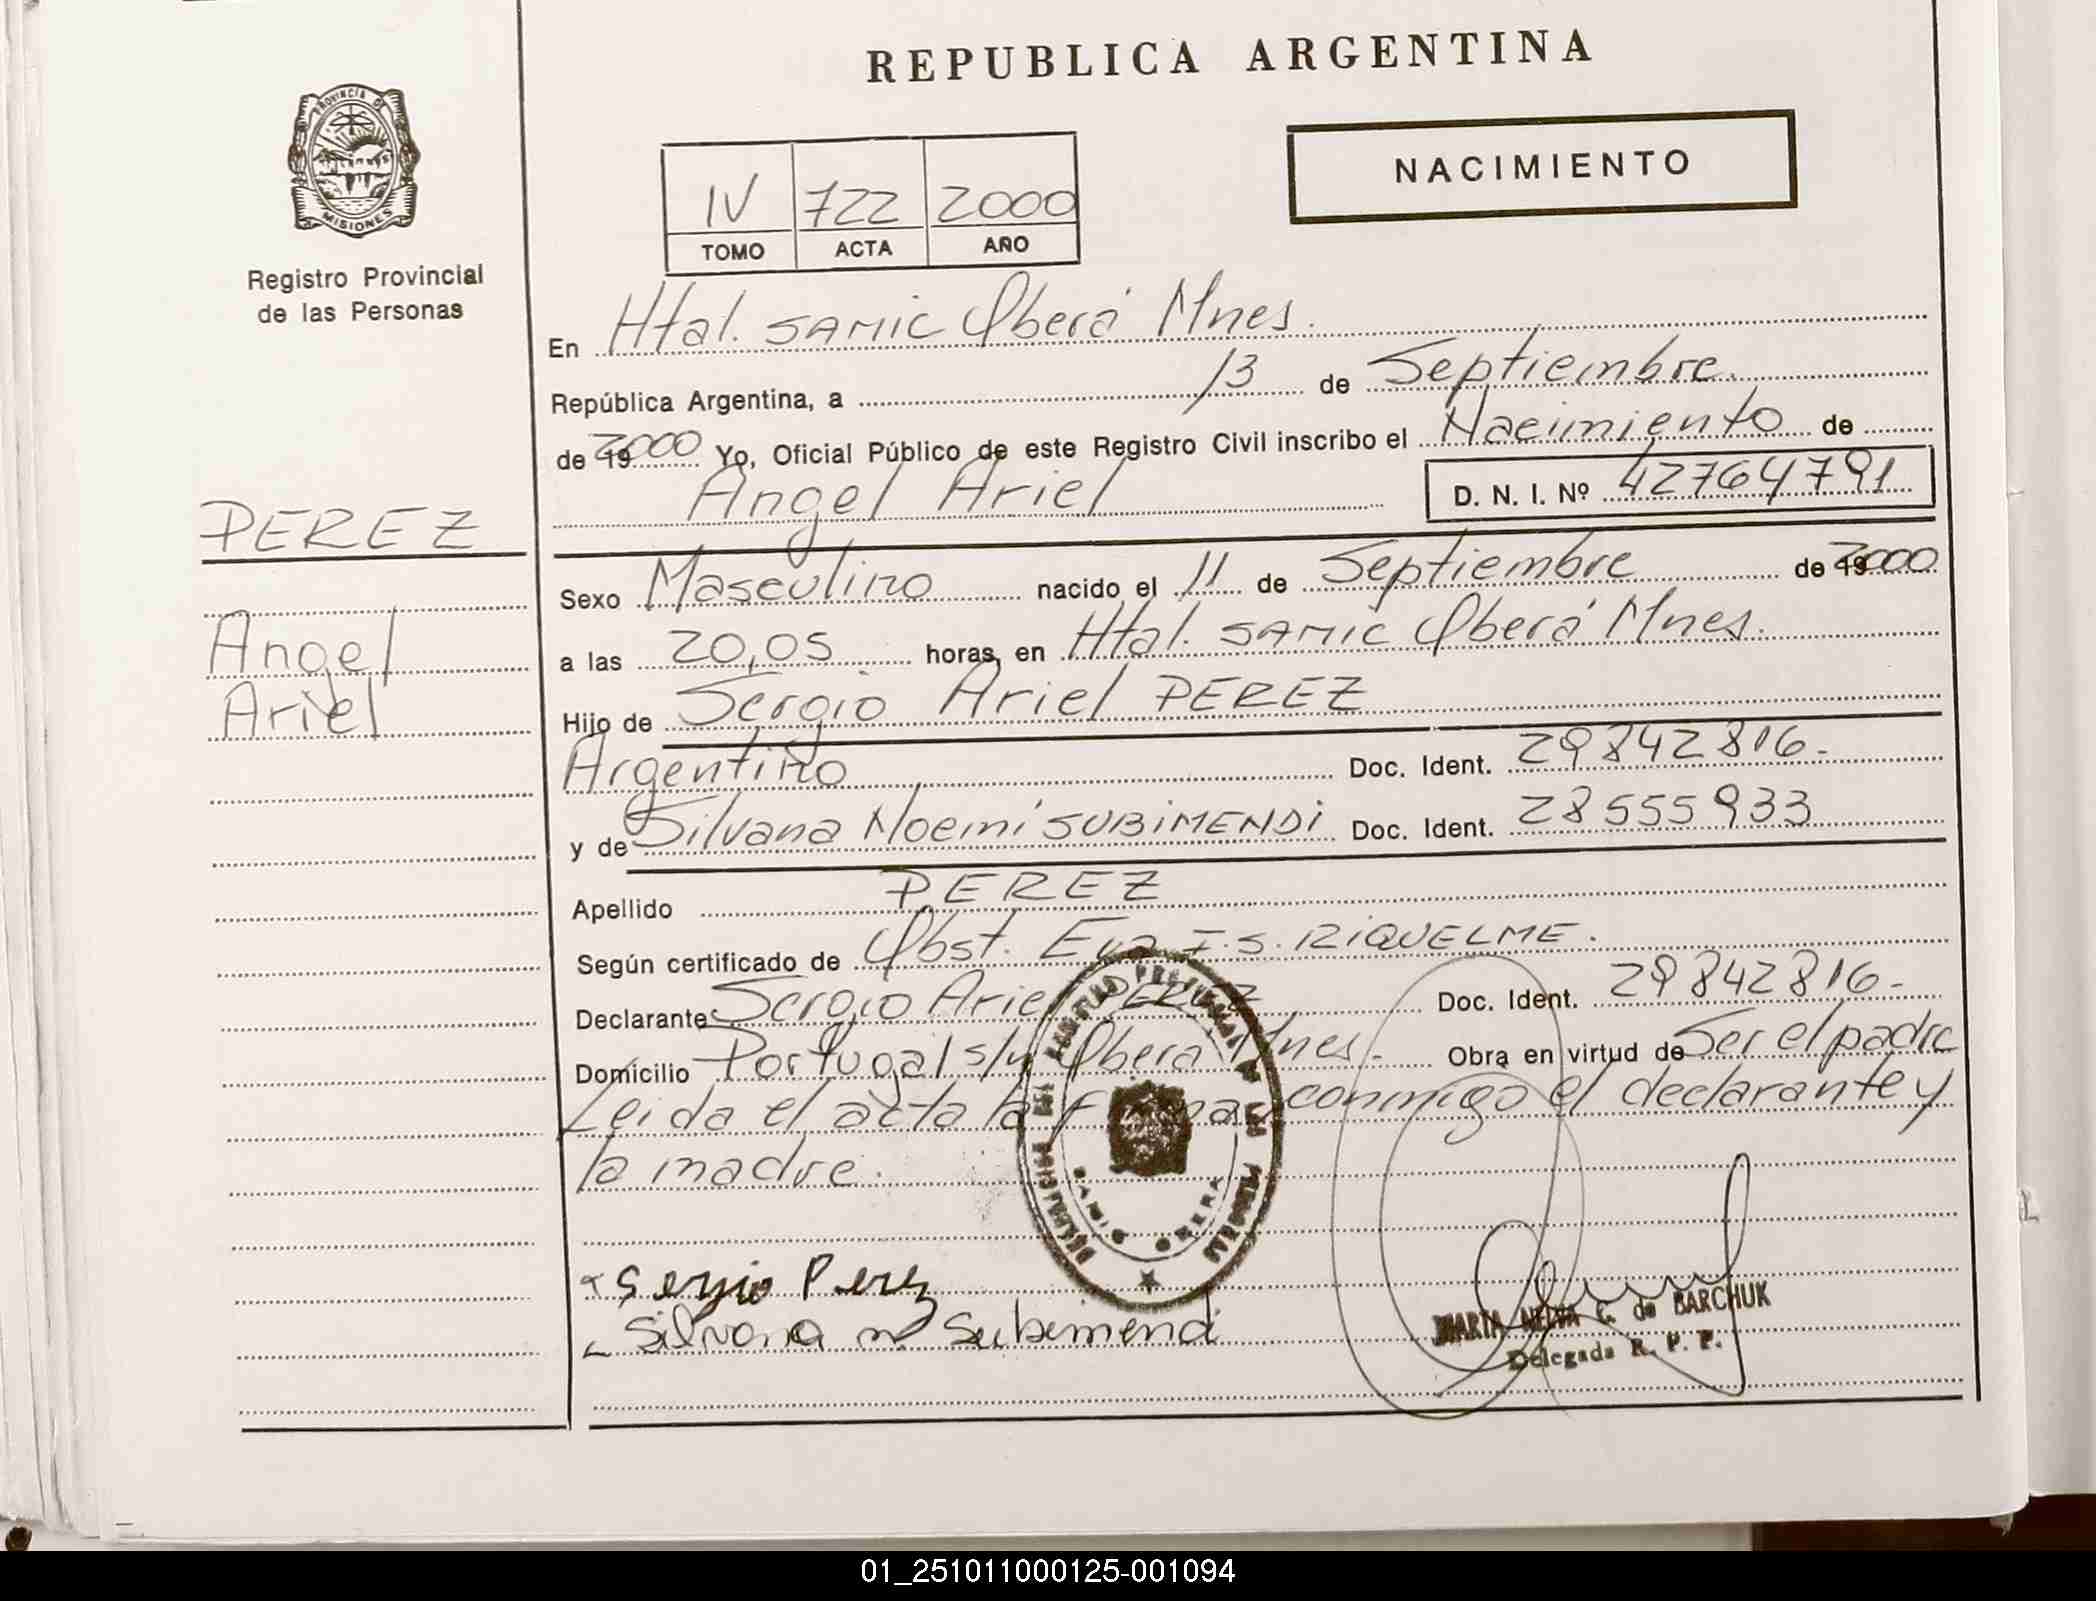 REPUBLICA ARGENTINA
PROVINCIA DE
MISIONES
Registro Provincial
de las Personas
NACIMIENTO
IV 722 2000
TOMO ACTA AÑO
En Htal. SAMIC Oberá Mnes.
República Argentina, a 13 de Septiembre.
de 19 2000 Yo, Oficial Público de este Registro Civil inscribo el Nacimiento de
Angel Ariel D. N. I. Nº 42764791
PEREZ
Angel
Ariel
Sexo Masculino nacido el 11 de Septiembre de 19 2000
a las 20,05 horas, en Htal. SAMIC Oberá Mnes.
Hijo de Sergio Ariel PEREZ
Argentino Doc. Ident. 29842816.-
y de Silvana Noemí SUBIMENDI Doc. Ident. 28555933
Apellido PEREZ
Según certificado de Obst. Eva F.S. RIQUELME.
Declarante Sergio Ariel PEREZ Doc. Ident. 29842816.-
Domicilio Portugal s/n Oberá Mnes.- Obra en virtud de Ser el padre
Leida el acta la firman conmigo el declarante y
la madre.
Sergio Perez
Silvana N Subimendi
MARTA NELVA C. de BARCHUK
Delegada R. P. P.
01_251011000125-001094